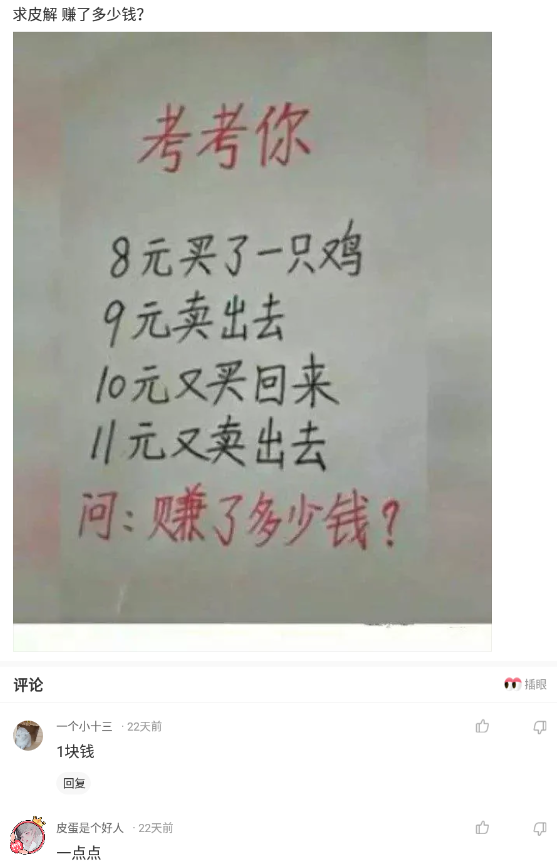 求皮解 赚了多少钱?
考考你
8元买了一只鸡
9元卖出去
10元又买回来
11元又卖出去
问:赚了多少钱?
评论
插眼
一个小十三 · 22天前
1块钱
回复
皮蛋是个好人 · 22天前
一点点